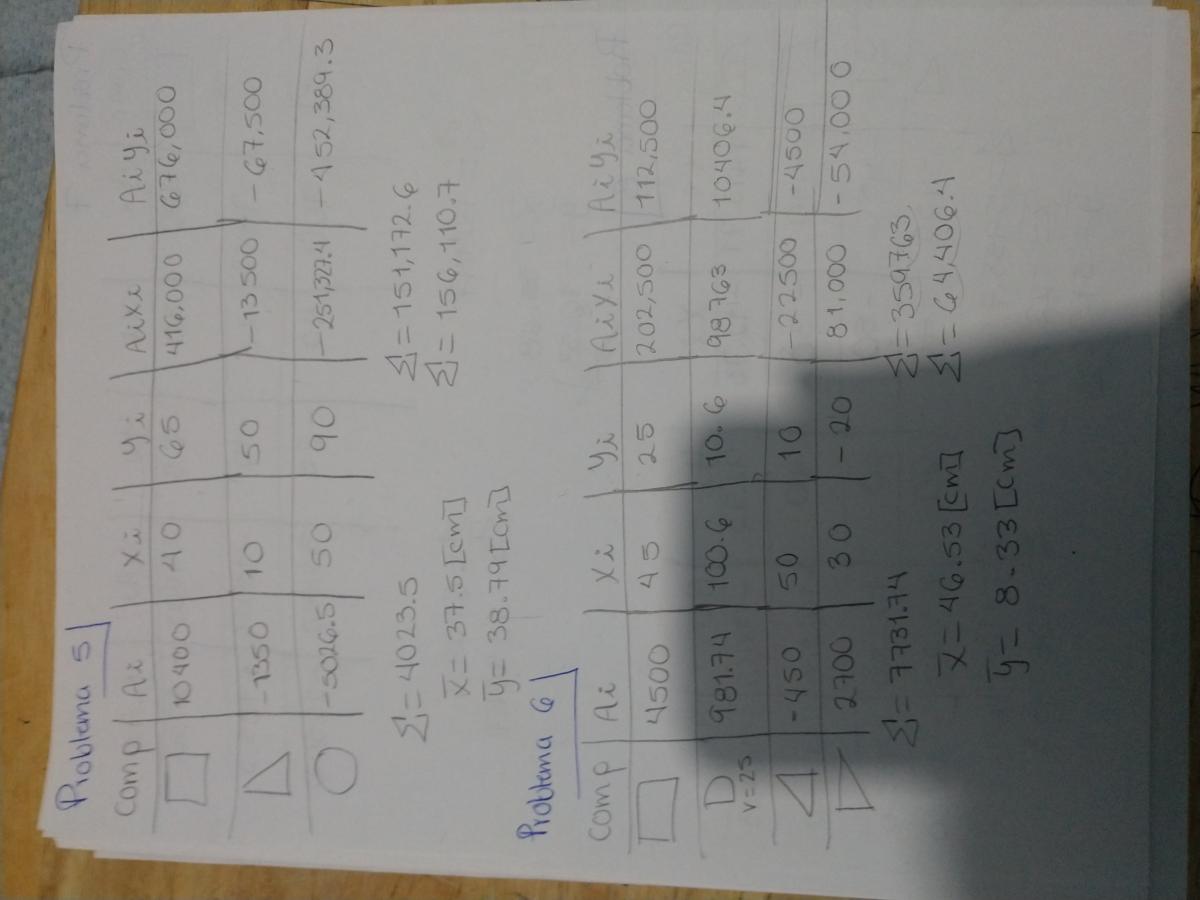 Problema 5
Comp Ai Xi Yi AiXi AiYi
10400 40 65 416,000 676,000
-1350 10 50 -13500 -67,500
-5026.5 50 90 -251,327.4 -452,389.3
Σ=4023.5 Σ=151,172.6
x̄=37.5[cm] Σ=156,110.7
ȳ=38.79[cm]
Problema 6
Comp Ai Xi Yi AiXi AiYi
4500 45 25 202,500 112,500
r=25 981.74 100.6 10.6 98763 10406.4
-450 50 10 -22500 -4500
2700 30 -20 81,000 -54,000
Σ=7731.74 Σ=359763
x̄=46.53[cm] Σ=64,406.4
ȳ=8.33[cm]